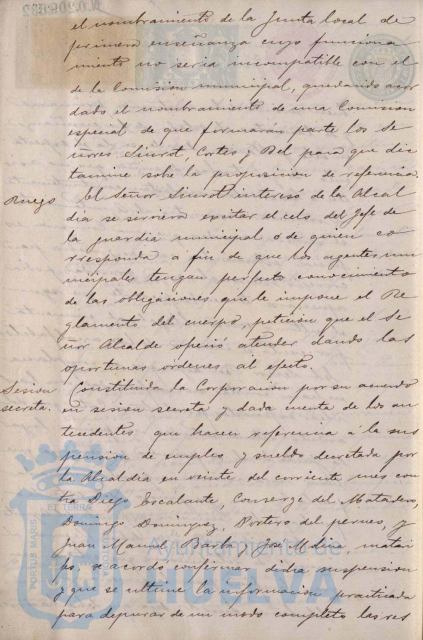 el nombramiento de la Junta local de
primera enseñanza cuyo funciona
miento no seria incompatible con el
de la Comision municipal, quedando acor
dado el nombramiento de una Comision
especial de que formarán parte los Se
ñores Siurot, Cortes y Bel para que dic
tamine sobe la proposicion de referencia.
Ruego El Señor Siurot interesó de la Alcal
dia se sirviera excitar el celo del Jefe de
la guardia municipal ó de quien co
rresponda a fin de que los agentes mu
nicipales tengan perfecto conocimiento
de las obligaciones que le impone el Re
glamento del cuerpo, peticion que el Se
ñor Alcalde ofreció atender dando las
oportunas órdenes al efecto.
Sesion secreta. Constituida la Corporacion por su acuerdo
en sesion secreta y dada cuenta de los an
tecedentes que hacen referencia á la sus
pension de empleo y sueldo decretada por
la Alcaldia en veinte del corriente mes con
tra Diego Escalante, Conserge del Matadero,
Domingo Dominguez, Portero del
Juan Manuel Barba y José Molin, matari
fes, se acordó confirmar dicha suspension
y que se ultime la informacion practicada
para depurar de un modo completo las res
PORTUS MARIS ET TERRÆ
Ayuntamiento de
HUELVA